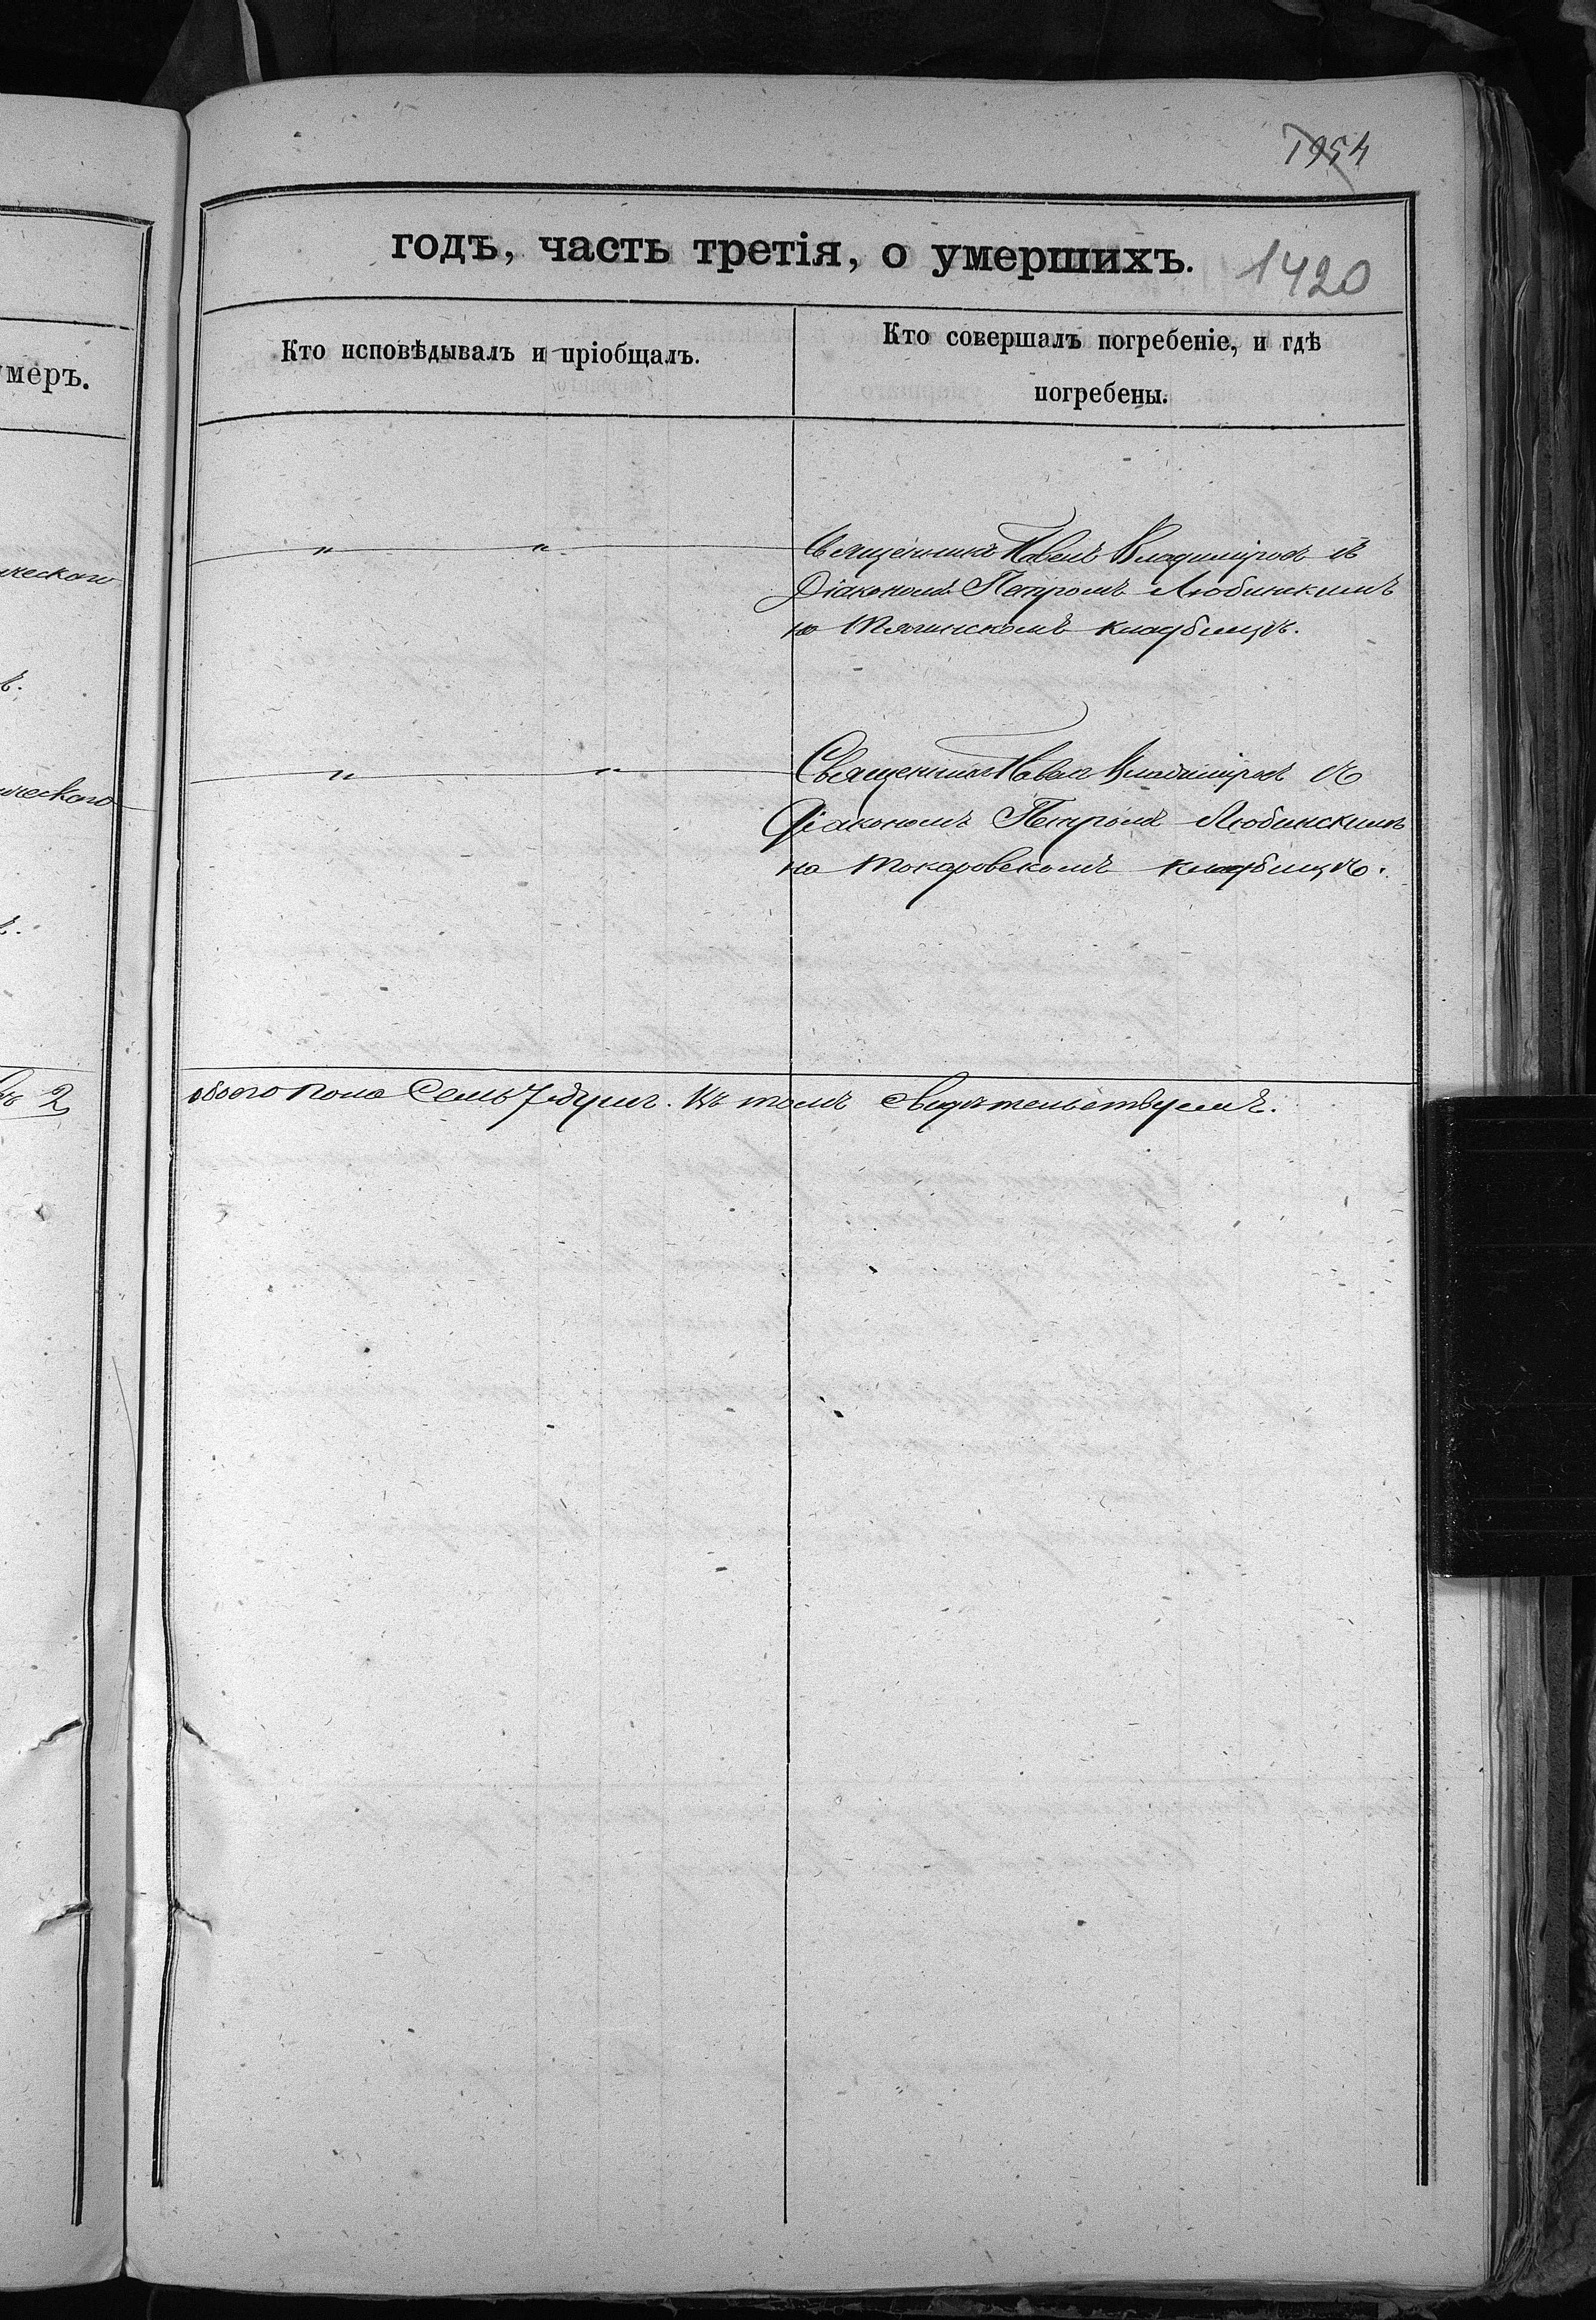 1954
годъ, часть третія, о умершихъ. 1420
умеръ.
Кто исповѣдывалъ и пріобщалъ.
Кто совершалъ погребеніе, и гдѣ
погребены.
ческаго
" " Священникъ Павелъ Владиміровъ съ
Діакономъ Петромъ Любинскимъ
на кладбищѣ.
ъ.
ческаго
" " Священникъ Павелъ Владиміровъ съ
Діакономъ Петромъ Любинскимъ
на Токаровскомъ кладбищѣ.
ъ.
2
обоего пола семь 7 душъ. Въ томъ свидѣтельствуемъ.